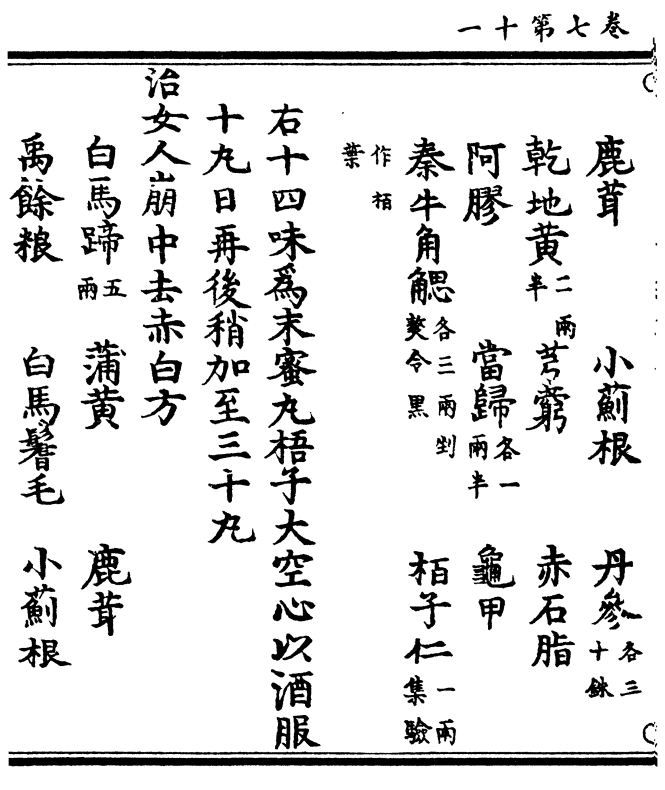 卷七第十一
鹿茸 小薊根 丹參各三十銖
乾地黃二兩半 芎藭 赤石脂
阿膠 當歸各一兩半 龜甲
秦牛角䚡各三兩剉熬令黑 栢子仁一兩集驗
作栢葉
右十四味爲末蜜丸梧子大空心以酒服
十丸日再後稍加至三十丸
治女人崩中去赤白方
白馬蹄五兩 蒲黃 鹿茸
禹餘粮 白馬鬐毛 小薊根